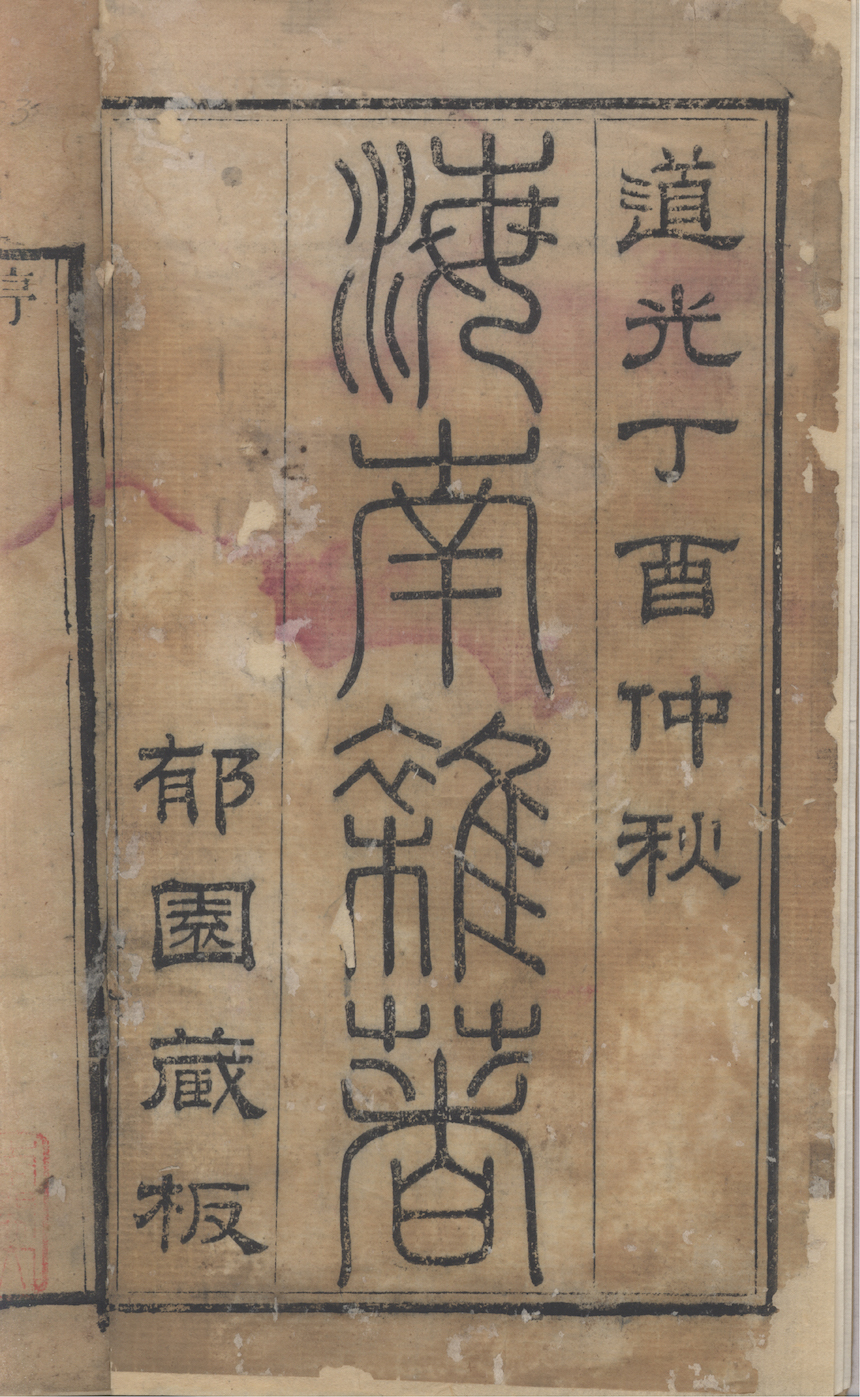 道光丁酉仲秋
海南雜著
郁園藏板